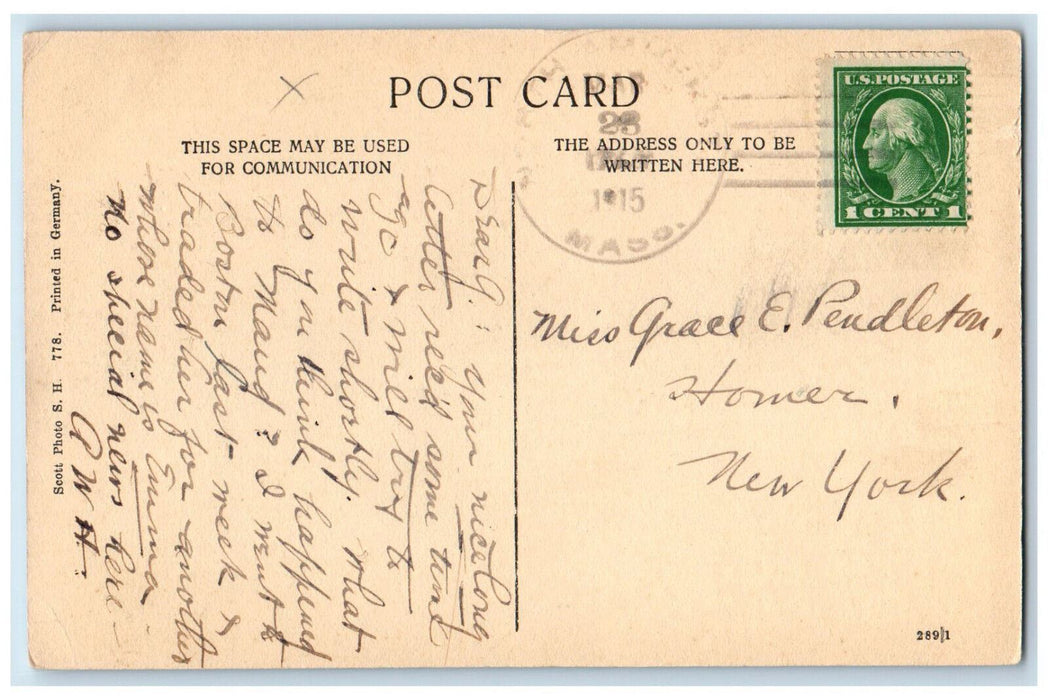 POST CARD
THIS SPACE MAY BE USED
FOR COMMUNICATION
THE ADDRESS ONLY TO BE
WRITTEN HERE.
DEC
28
1915
MASS.
U.S. POSTAGE
1 CENT 1
Dear G: Your nice long
letter rec'd some time
ago & will try to
write shortly. What
do you think happened
to Maud? I went to
Boston last week &
traded her for another
whose name is Emma
No special news here -
A W H.
Miss Grace E. Pendleton,
Homer,
New York.
Scott Photo S. H. 778. Printed in Germany.
289/1